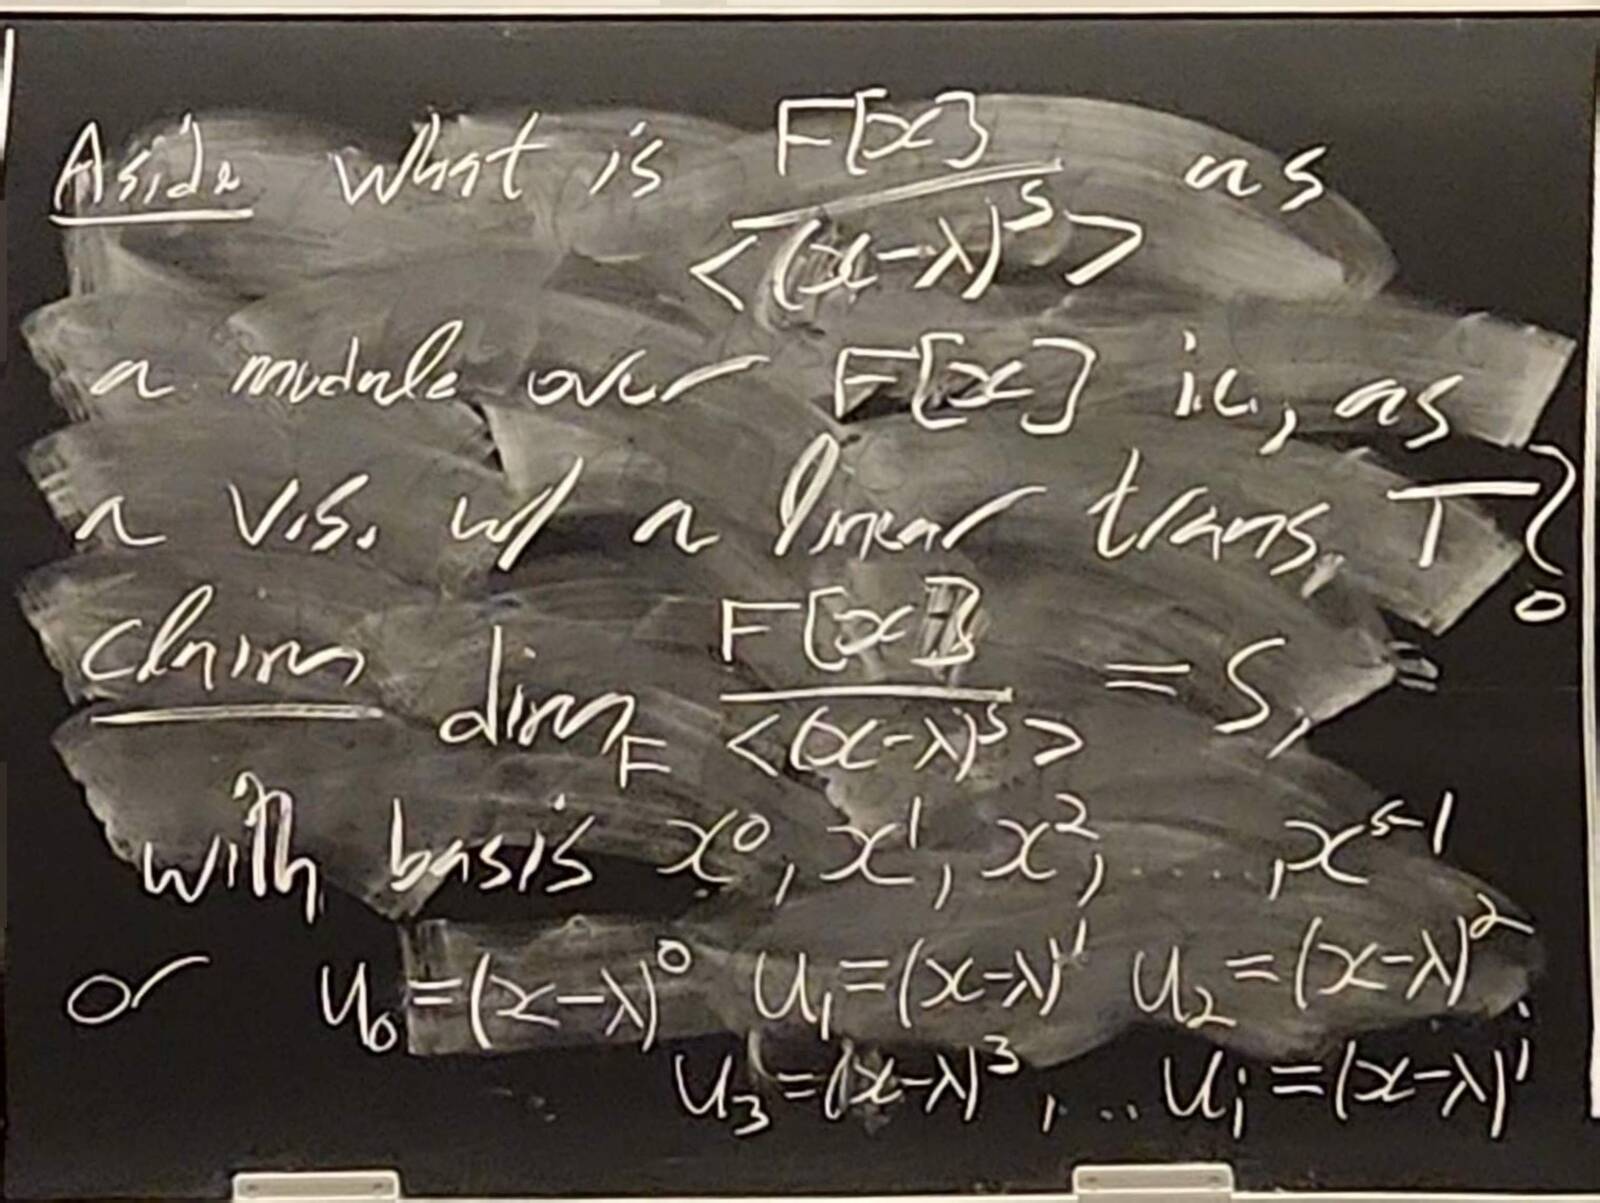 Aside what is F[x] / <(x-λ)^s> as
a module over F[x] i.e., as
a v.s. w/ a linear trans. T?
claim dim_F F[x] / <(x-λ)^s> = s,
with basis x^0, x^1, x^2, ....., x^{s-1}
or u_0=(x-λ)^0 u_1=(x-λ)^1 u_2=(x-λ)^2
u_3=(x-λ)^3, ... u_i=(x-λ)^i